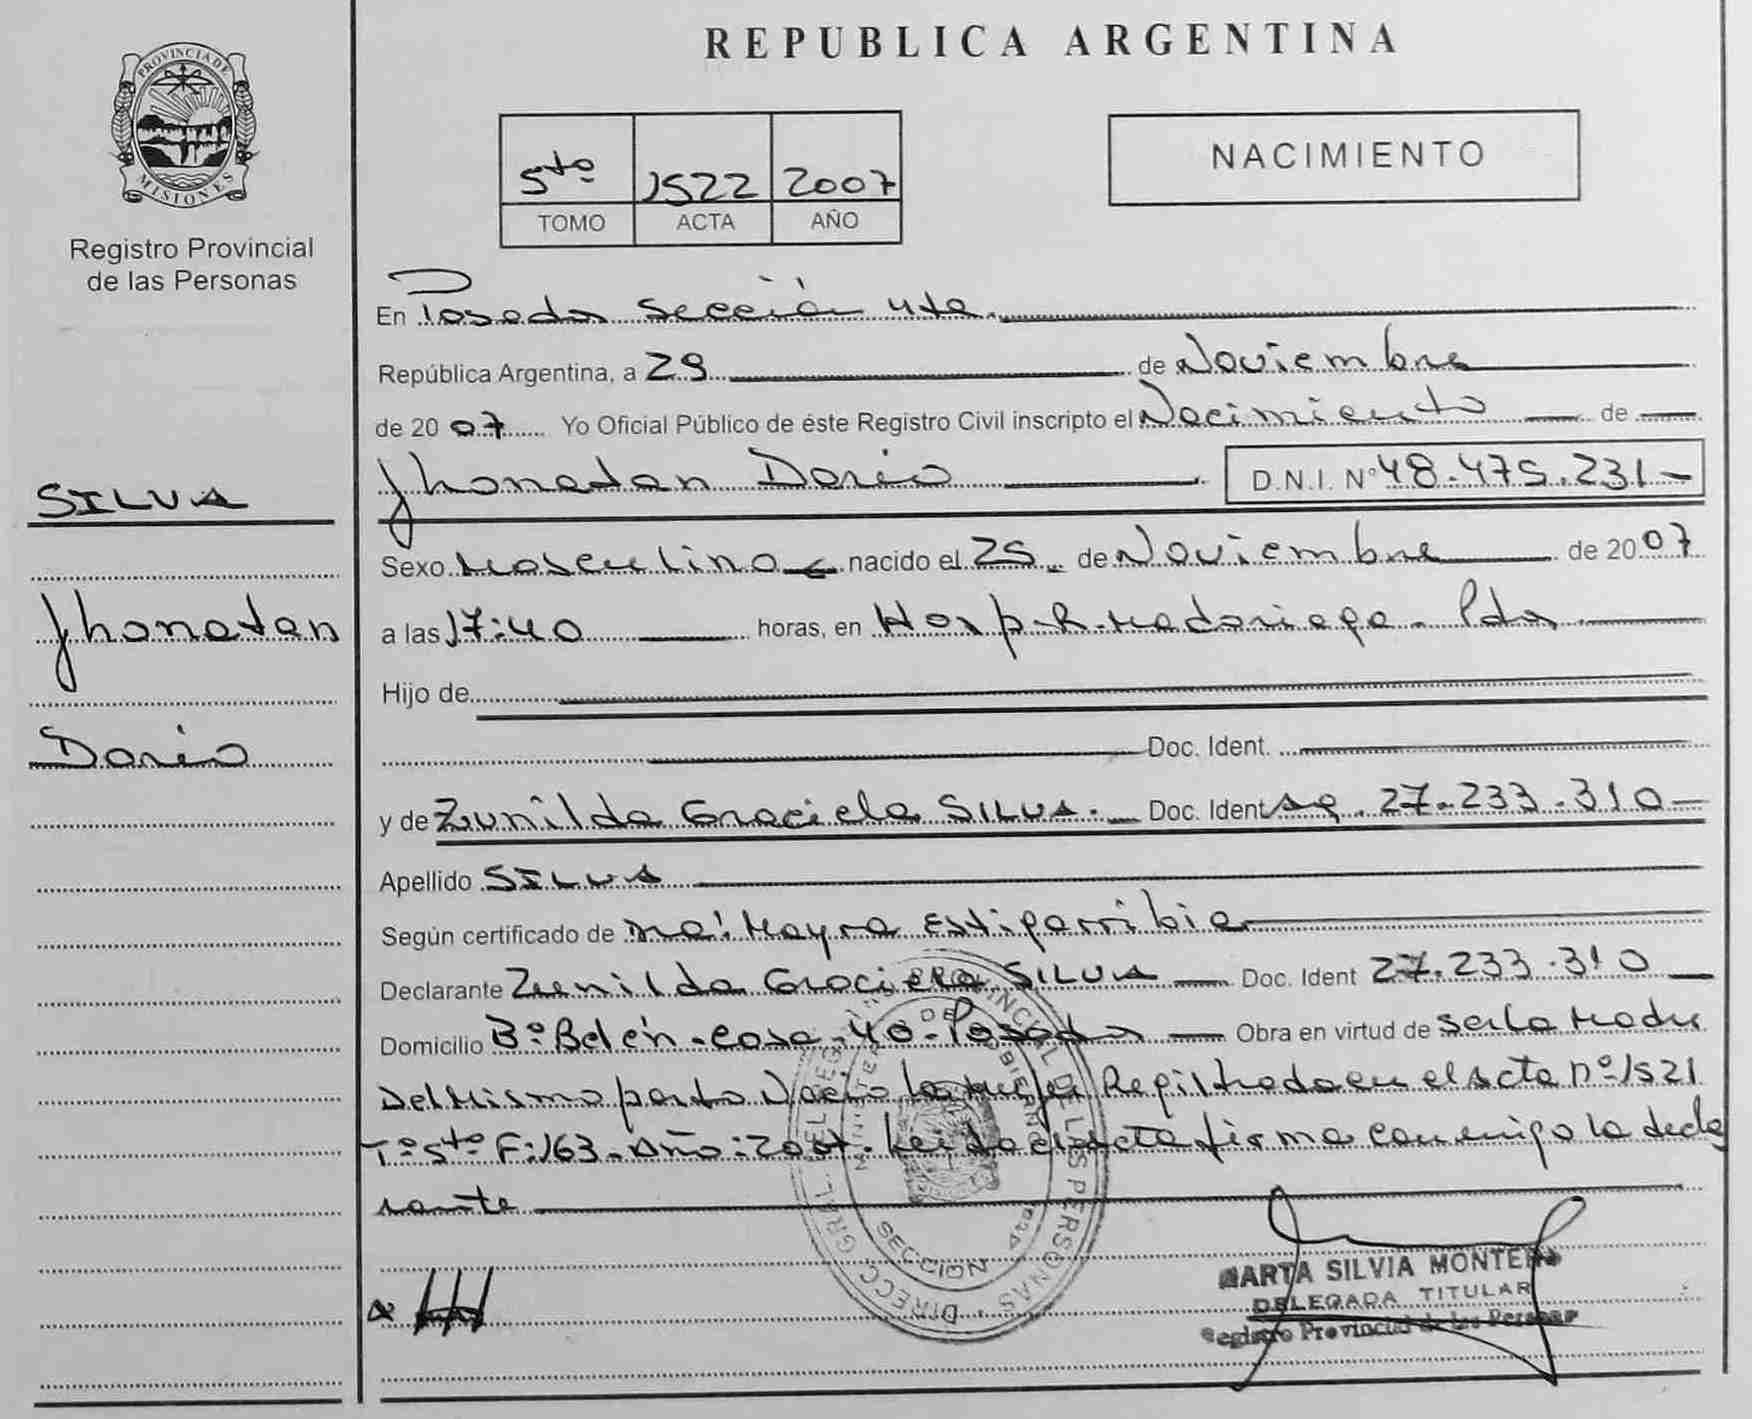 REPUBLICA ARGENTINA
PROVINCIA DE MISIONES
Registro Provincial
de las Personas
5to 1522 2007
TOMO ACTA AÑO
NACIMIENTO
En Posadas sección 4ta.
República Argentina, a 29 de Noviembre
de 2007 Yo Oficial Público de éste Registro Civil inscripto el Nacimiento de
Jhonatan Dario D.N.I. Nº 48.475.231-
SILVA
Jhonatan
Dario
Sexo Masculino nacido el 25 de Noviembre de 2007
a las 17:40 horas, en Hosp. R. Madariaga - Pdas.
Hijo de
Doc. Ident.
y de Zunilda Graciela SILVA. Doc. Ident 27.233.310
Apellido SILVA
Según certificado de Mayra
Declarante Zunilda Graciela SILVA Doc. Ident 27.233.310
Domicilio Bº Belén - casa 40 - Posadas Obra en virtud de ser la Madre
Del Mismo parto Nació la Registrada en el acta nº 1521
Tº 5to F: 163. Año: 2007. Leida el acta firma conmigo la decla
rante
DIRECC. GRAL. DEL REG. PROVINCIAL DE LAS PERSONAS
MINISTERIO DE GOBIERNO
SECCION 4ta
MARTA SILVIA MONTERO
DELEGADA TITULAR
Registro Provincial de las Personas